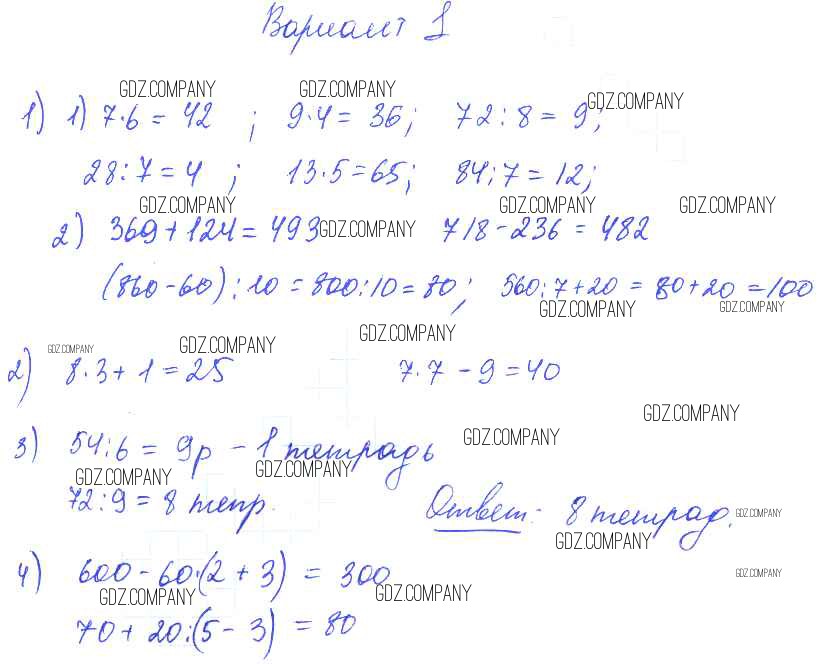 Вариант 1
1) 1) 7·6 = 42 ; 9·4 = 36; 72:8 = 9;
28:7 = 4 ; 13·5 = 65; 84:7 = 12;
2) 369 + 124 = 493 718 - 236 = 482
(860 - 60) : 10 = 800:10 = 80; 560:7 + 20 = 80 + 20 = 100
2) 8·3 + 1 = 25 7·7 - 9 = 40
3) 54:6 = 9р - 1 тетрадь
72:9 = 8 тетр. Ответ: 8 тетрад.
4) 600 - 60·(2 + 3) = 300
70 + 20:(5 - 3) = 80
GDZ.COMPANY GDZ.COMPANY GDZ.COMPANY
GDZ.COMPANY GDZ.COMPANY GDZ.COMPANY
GDZ.COMPANY
GDZ.COMPANY GDZ.COMPANY
GDZ.COMPANY GDZ.COMPANY GDZ.COMPANY
GDZ.COMPANY
GDZ.COMPANY
GDZ.COMPANY GDZ.COMPANY
GDZ.COMPANY
GDZ.COMPANY
GDZ.COMPANY
GDZ.COMPANY GDZ.COMPANY